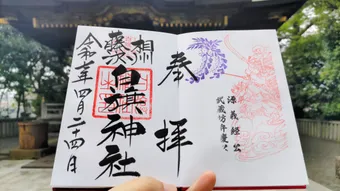 奉拝
源義経公
武蔵坊弁慶公
相州
藤沢
白旗神社
令和七年四月二十四日